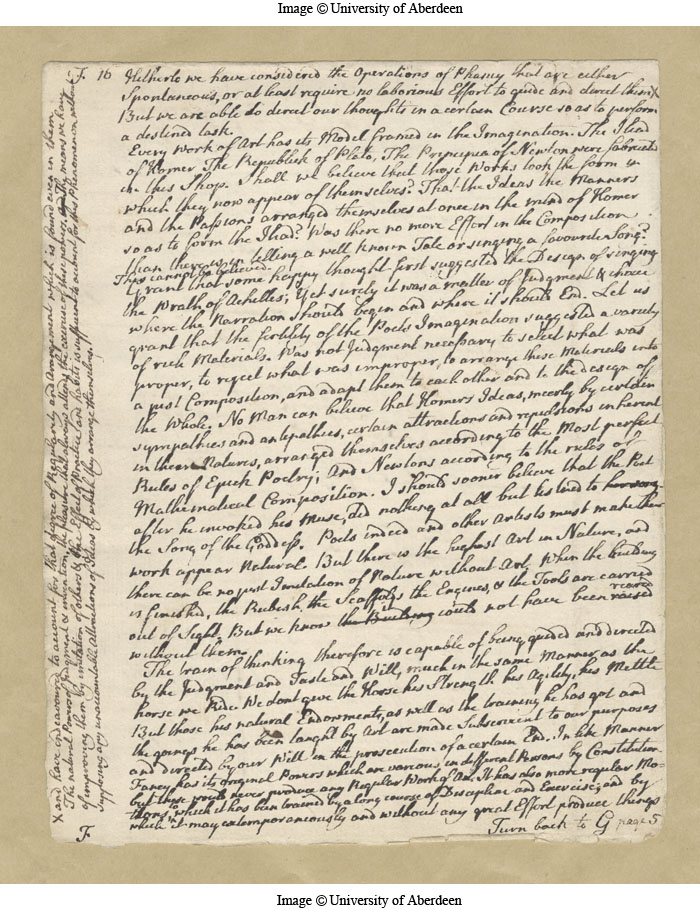 Image © University of Aberdeen
F. 16 Hitherto we have considered the Operations of Phansy that are either
Spontaneous, or at least require no laborious Effort to guide and direct them X
But we are able to direct our thoughts in a certain Course so as to perform
a destined task.
Every Work of Art has its Model framed in the Imagination. The Iliad
of Homer The Republick of Plato, The Principia of Newton were fabricated
in this Shop. Shall we believe that those Works took the form in
which they now appear of themselves? That the Ideas the Manners
and the Passions arranged themselves at once in the mind of Homer
so as to form the Iliad? Was there no more Effort in the Composition
than there is in telling a well known Tale or singing a favourite Song?
This cannot be believed.
Grant that some happy thought first suggested the Design of singing
the Wrath of Achilles; Yet surely it was a matter of Judgment & choice
where the Narration should begin and where it should End. Let us
grant that the fertility of the Poets Imagination suggested a variety
of rich Materials. Was not Judgment necessary to select what was
proper, to reject what was improper, to arrange these Materials into
a just Composition, and adapt them to each other and to the design of
the Whole. No Man can believe that Homers Ideas, meerly by certain
sympathies and antipathies, certain attractions and repulsions inherent
in their Natures, arranged themselves according to the most perfect
Rules of Epick Poetry; And Newtons according to the rules of
Mathematical Composition. I should sooner believe that the Poet
after he invoked his Muse, did nothing at all but listend to
the Song of the Goddess. Poets indeed and other Artists must make their
work appear Natural. But there is the highest Art in Nature, and
there can be no just Imitation of Nature without Art. When the building
is finished, the Rubish, the Scaffolds the Engines, & the Tools are carried
out of Sight. But we know it could not have been reared
without them.
The train of thinking therefore is capable of being guided and directed
by the Judgment and Taste and Will, much in the same Manner as the
horse we Ride. We dont give the Horse his Strength his Agility, his Mettle
But those his natural Endowments, as well as the training he has got and
the goings he has been taught by Art are made Subservient to our purposes
and directed by our Will in the prosecution of a certain End. In like Manner
Fancy has its original Powers which are various in different Persons by Constitution
but these would never produce any Regular Work of Art. It has also more regular Mo-
tions, to which it has been trained by a long course of Discipline and Exercise; and by
which it may extemporaneously and without any great Effort produce things
Turn back to G page 5
F.
X and have endeavoured to account for that degree of Regularity and Arrangement which is found even in them.
The natural Powers of Judgment & invention, the pleasure that always attends the exercise of those powers, the means we have
of improving them by imitation of others & the Effect of Practice and habits is sufficient to account for this Phenomenon, without
supposing any unaccountable Attractions of Ideas by which they arrange themselves.
Image © University of Aberdeen